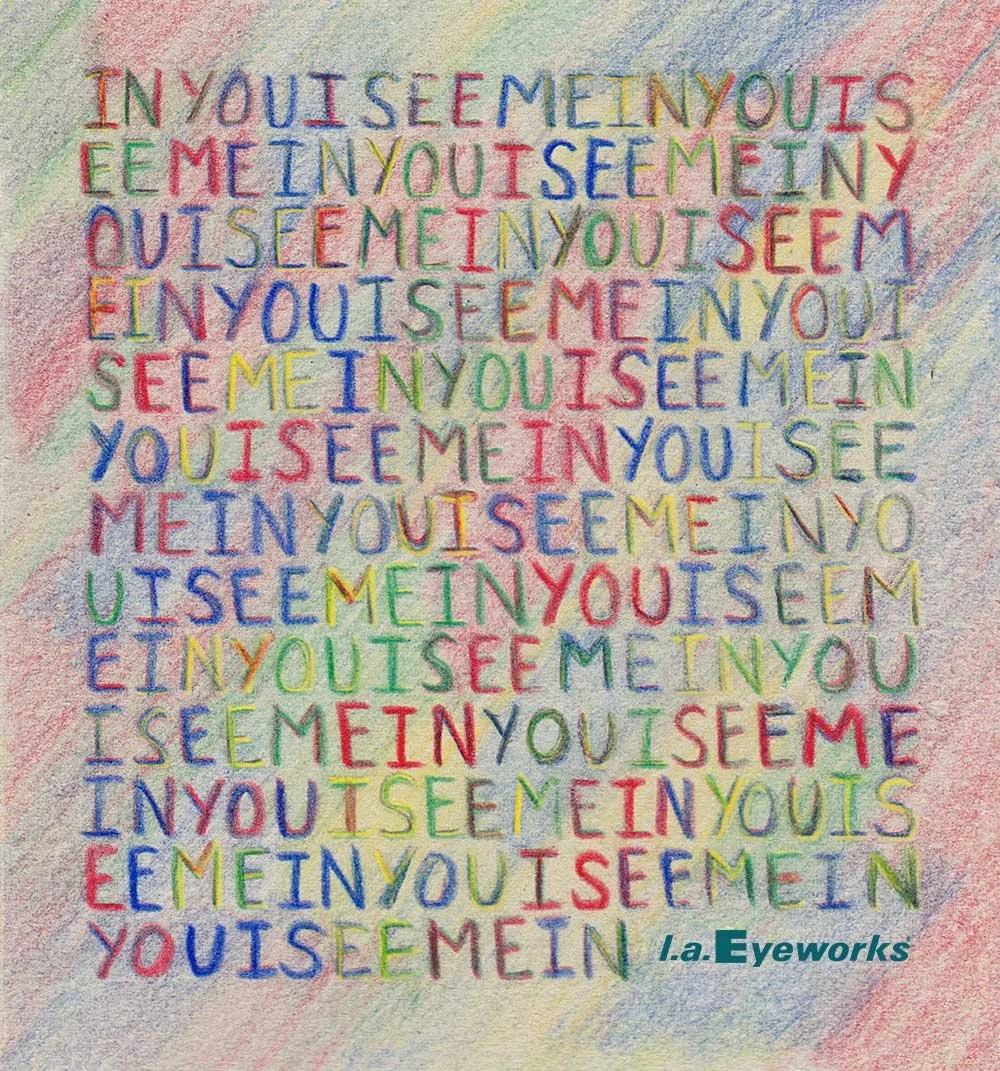 INYOUISEEMEINYOUIS
EEMEINYOUISEEMEINY
OUISEEMEINYOUISEEM
EINYOUISEEMEINYOUI
SEEMEINYOUISEEMEIN
YOUISEEMEINYOUISEE
MEINYOUISEEMEINYO
UISEEMEINYOUISEEM
EINYOUISEEMEINYOU
ISEEMEINYOUISEEME
INYOUISEEMEINYOUIS
EEMEINYOUISEEMEIN
YOUISEEMEIN l.a.Eyeworks